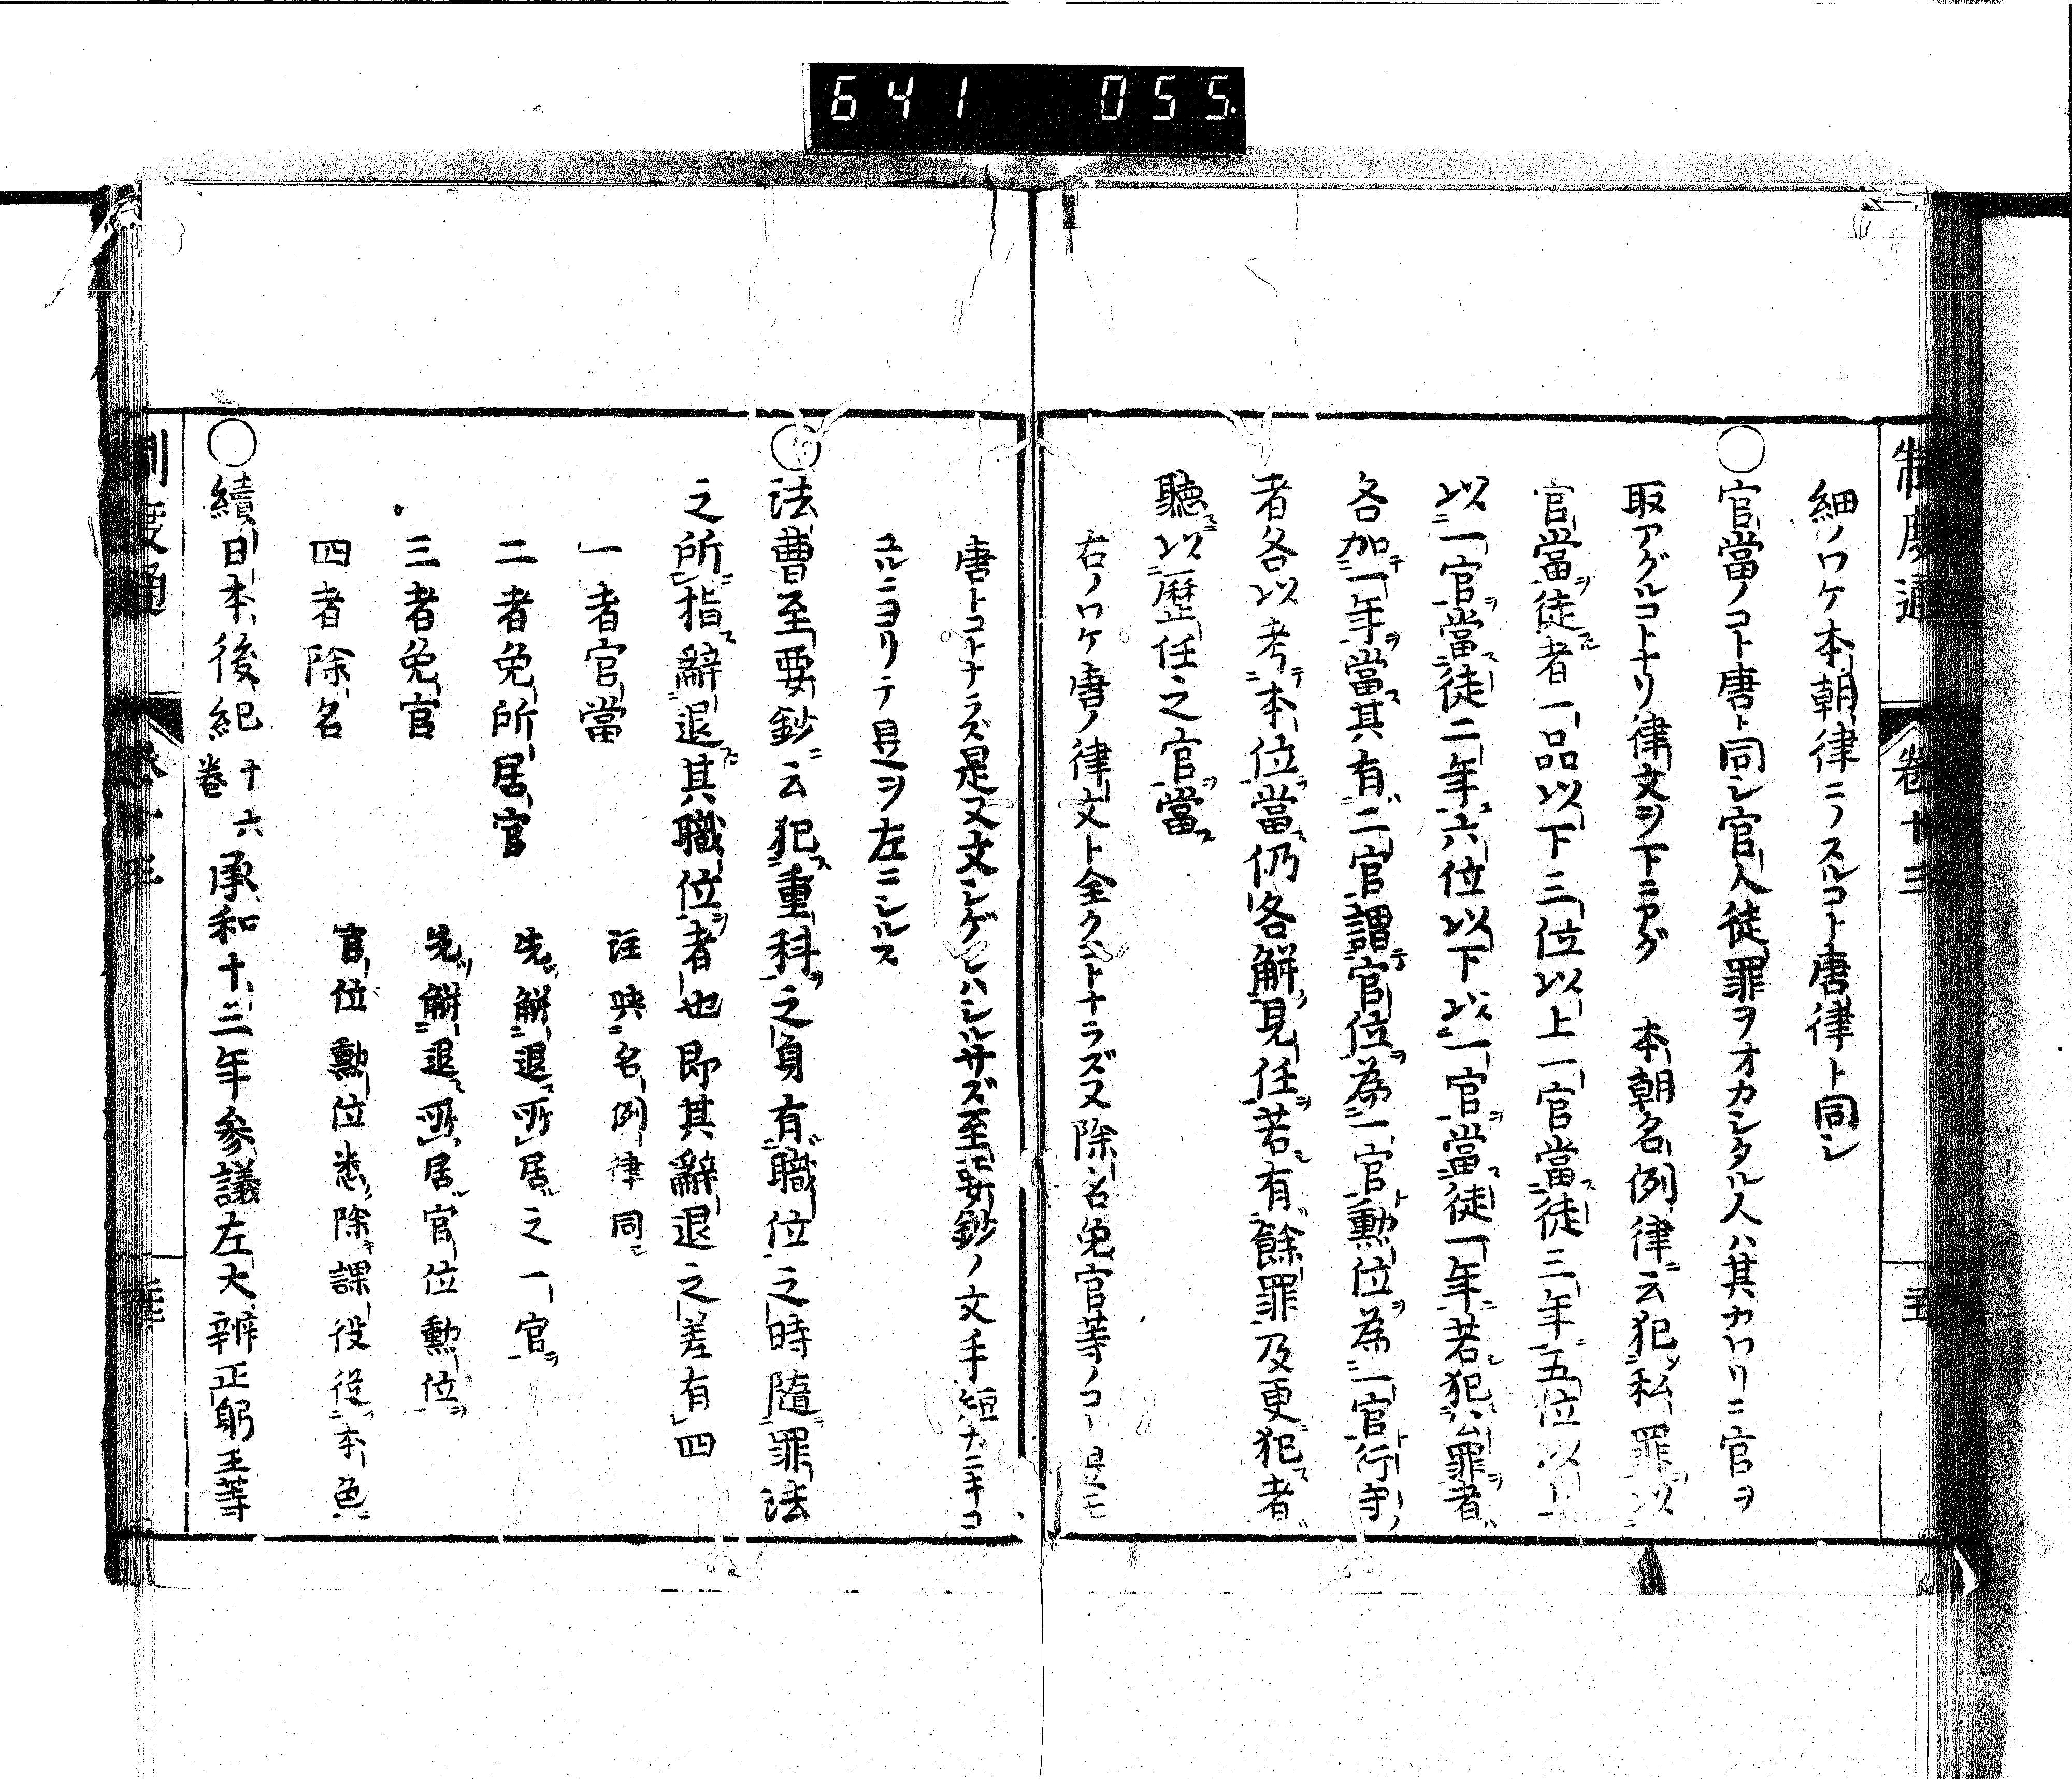 641 055
制度通 卷十三 五
細ノワケ本朝律ニノスルコト唐律ト同シ
○官當ノコト唐ト同シ官人徒罪ヲオカシタル人ハ其カワリニ官ヲ
取アグルコトナリ律文ヲ下ニアグ 本朝名例律云犯私罪以
官當徒者一品以下三位以上一官當徒三年五位以上
以一官當徒二年六位以下以一官當徒一年若犯公罪者
各加一年當其有二官謂官位為一官勲位為一官行守
者各以考本位當仍各解見任若有餘罪及更犯者
聽以歷任之官當
右ノワケ唐ノ律文ト全クコトナラズ又除名免官等ノコト是モ
唐トコトナラズ是又文シゲレハシルサズ至要鈔ノ文手短カニキコ
ユルニヨリテ是ヲ左ニシルス
○法曹至要鈔ニ云犯重科之身有職位之時隨罪法
之所指辭退其職位者也即其辭退之差有四
一者官當 註䏮名例律同
二者免所居官 先解退所居之一官
三者免官 先解退所居官位勲位
四者除名 官位勲位悉除課役從本色
○續日本後紀卷十六承和十三年參議左大辨正躬王等
制度通